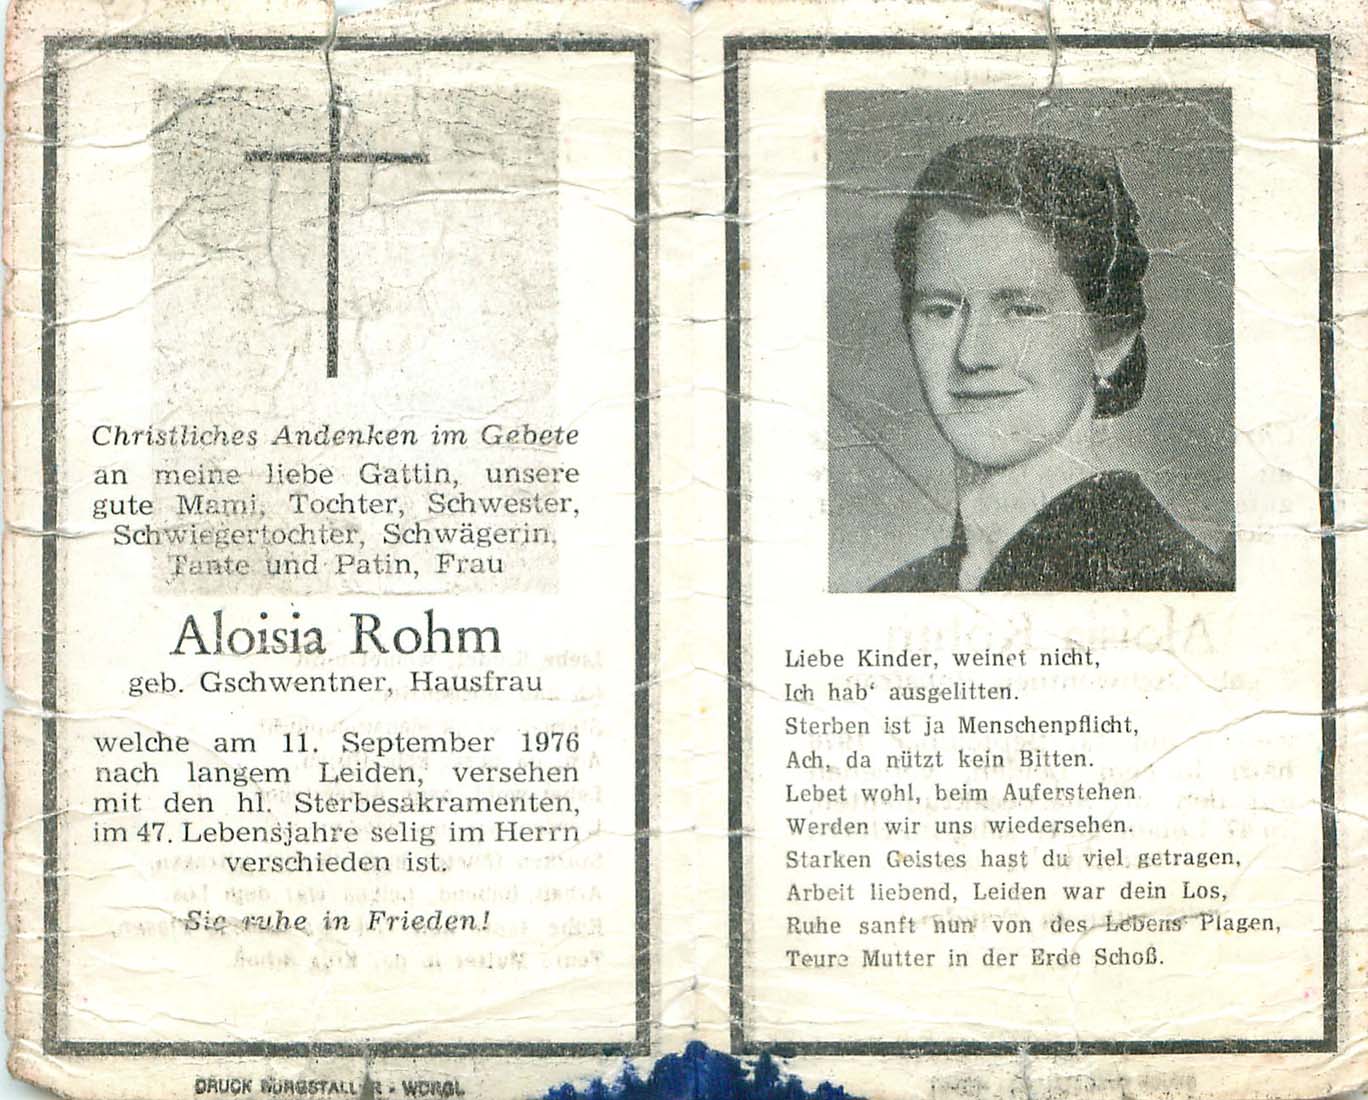 Christliches Andenken im Gebete
an meine liebe Gattin, unsere
gute Mami, Tochter, Schwester,
Schwiegertochter, Schwägerin,
Tante und Patin, Frau
Aloisia Rohm
geb. Gschwentner, Hausfrau
welche am 11. September 1976
nach langem Leiden, versehen
mit den hl. Sterbesakramenten,
im 47. Lebensjahre selig im Herrn
verschieden ist.
Sie ruhe in Frieden!
DRUCK BURGSTALLER - WÖRGL
Liebe Kinder, weinet nicht,
Ich hab' ausgelitten.
Sterben ist ja Menschenpflicht,
Ach, da nützt kein Bitten.
Lebet wohl, beim Auferstehen
Werden wir uns wiedersehen.
Starken Geistes hast du viel getragen,
Arbeit liebend, Leiden war dein Los,
Ruhe sanft nun von des Lebens Plagen,
Teure Mutter in der Erde Schoß.